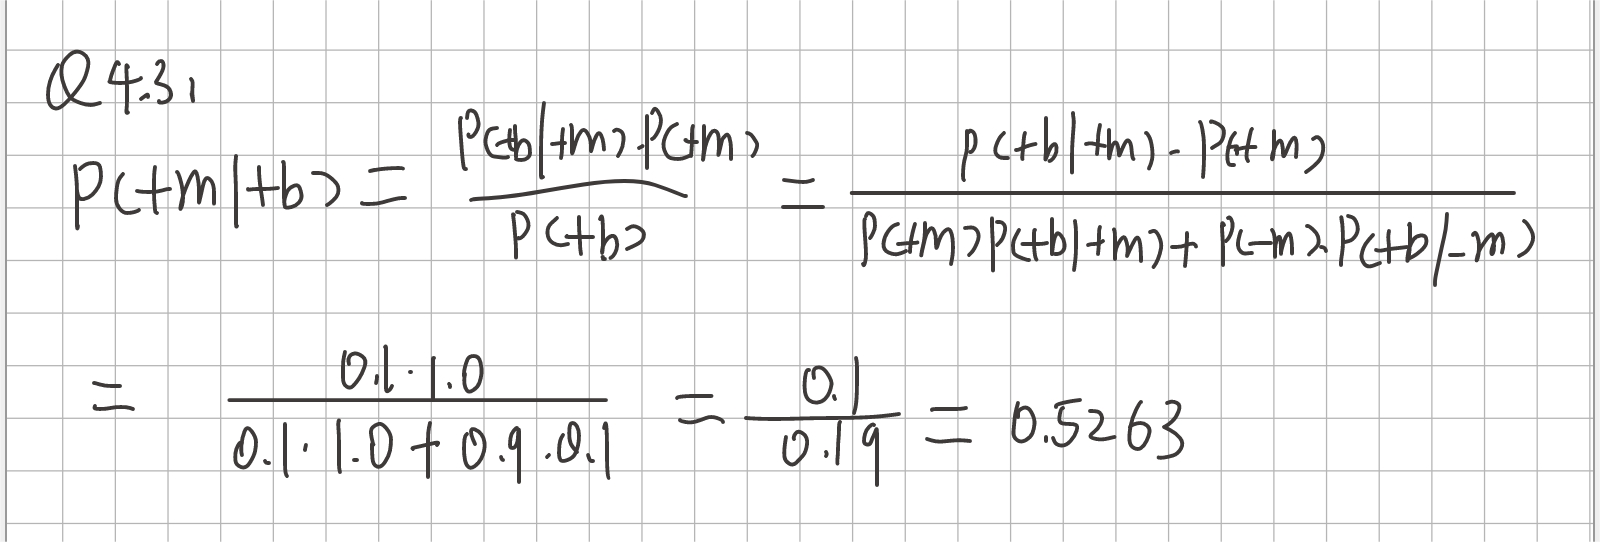 Q 4.31
P(+m|+b) = P(+b|+m)·P(+m) / P(+b) = P(+b|+m)·P(+m) / P(+m)P(+b|+m)+P(-m)·P(+b|-m)
= 0.1·1.0 / 0.1·1.0+0.9·0.1 = 0.1 / 0.19 = 0.5263